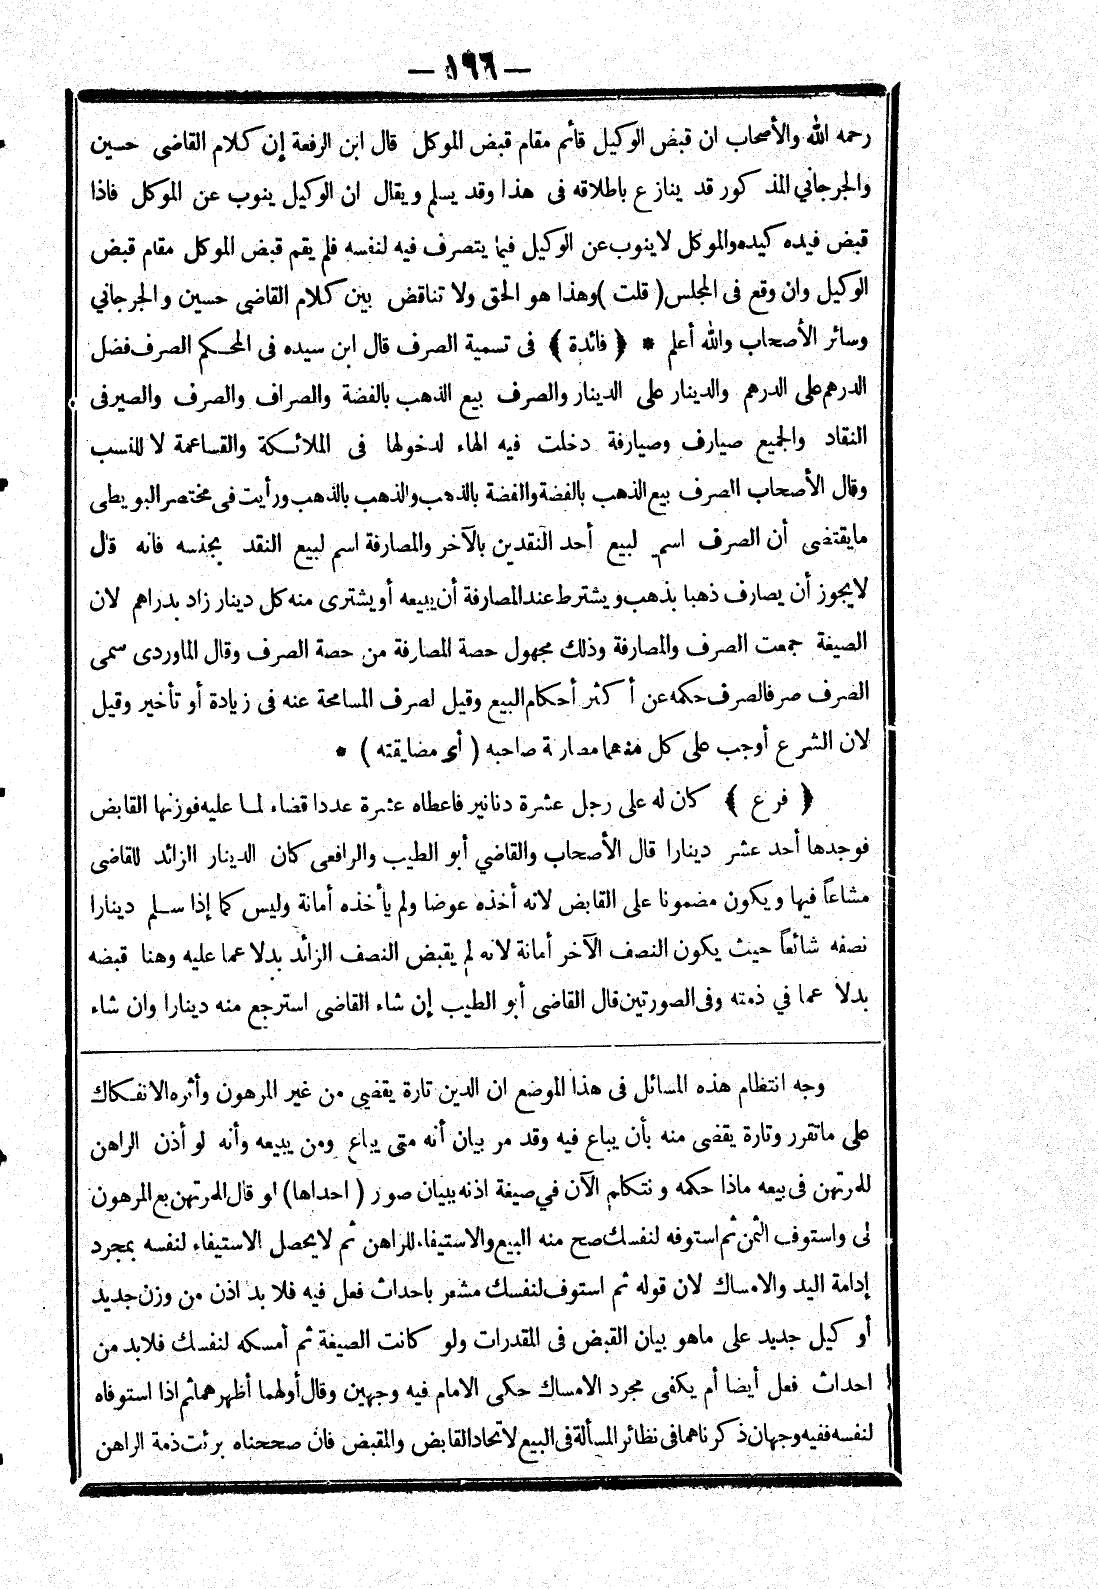 — ١٩٦ —
رحمه الله والأصحاب ان قبض الوكيل قائم مقام قبض الموكل قال ابن الرفعة إن كلام القاضى حسين
والجرجاني المذكور قد ينازع باطلاقه فى هذا وقد يسلم ويقال ان الوكيل ينوب عن الموكل فاذا
قبض فيده كيده والموكل لا ينوب عن الوكيل فيما يتصرف فيه لنفسه فلم يقم قبض الموكل مقام قبض
الوكيل وان وقع فى المجلس ( قلت ) وهذا هو الحق ولا تناقض بين كلام القاضى حسين والجرجاني
وسائر الأصحاب والله أعلم * ﴿ فائدة ﴾ فى تسمية الصرف قال ابن سيده فى المحكم الصرف فضل
الدرهم على الدرهم والدينار على الدينار والصرف بيع الذهب بالفضة والصراف والصرف والصيرفى
النقاد والجميع صيارف وصيارفة دخلت فيه الهاء لدخولها فى الملائكة والقساعمة لا للنسب
وقال الأصحاب الصرف بيع الذهب بالفضة والفضة بالذهب والذهب بالذهب ورأيت فى مختصر البويطى
ما يقتضى أن الصرف اسم لبيع أحد النقدين بالآخر والمصارفة اسم لبيع النقد بجنسه فانه قال
لا يجوز أن يصارف ذهبا بذهب ويشترط عند المصارفة أن يبيعه أو يشترى منه كل دينار زاد بدراهم لان
الصيغة جمعت الصرف والمصارفة وذلك مجهول حصة المصارفة من حصة الصرف وقال الماوردى سمى
الصرف صرفا لصرف حكمه عن أكثر أحكام البيع وقيل لصرف المسامحة عنه فى زيادة أو تأخير وقيل
لان الشرع أوجب على كل منهما مصارفة صاحبه ( أى مضايقته ) *
﴿ فرع ﴾ كان له على رجل عشرة دنانير فاعطاه عشرة عددا قضاء لما عليه فوزنها القابض
فوجدها أحد عشر دينارا قال الأصحاب والقاضي أبو الطيب والرافعى كان الدينار الزائد للقاضى
مشاعاً فيها ويكون مضمونا على القابض لانه أخذه عوضا ولم يأخذه أمانة وليس كما إذا سلم دينارا
نصفه شائعاً حيث يكون النصف الآخر أمانة لانه لم يقبض النصف الزائد بدلا عما عليه وهنا قبضه
بدلا عما في ذمته وفى الصورتين قال القاضى أبو الطيب إن شاء القاضى استرجع منه دينارا وان شاء
وجه انتظام هذه المسائل فى هذا الموضع ان الدين تارة يقضى من غير المرهون وأثره الانفكاك
على ما تقرر وتارة يقضى منه بأن يباع فيه وقد مر بيان أنه متى يباع ومن يبيعه وأنه لو أذن الراهن
للمرتهن فى بيعه ماذا حكمه ونتكلم الآن في صيغة اذنه ببيان صور ( احداها ) لو قال المرتهن بع المرهون
لى واستوف الثمن ثم استوفه لنفسك صح منه البيع والاستيفاء للراهن ثم لا يحصل الاستيفاء لنفسه بمجرد
إدامة اليد والامساك لان قوله ثم استوف لنفسك مشعر باحداث فعل فيه فلا بد اذن من وزن جديد
أو كيل جديد على ما هو بيان القبض فى المقدرات ولو كانت الصيغة ثم أمسكه لنفسك فلا بد من
احداث فعل أيضا أم يكفى مجرد الامساك حكى الامام فيه وجهين وقال أولهما أظهرهما ثم اذا استوفاه
لنفسه ففيه وجهان ذكرناهما فى نظائر المسألة فى البيع لاتحاد القابض والمقبض فان صححناه برئت ذمة الراهن